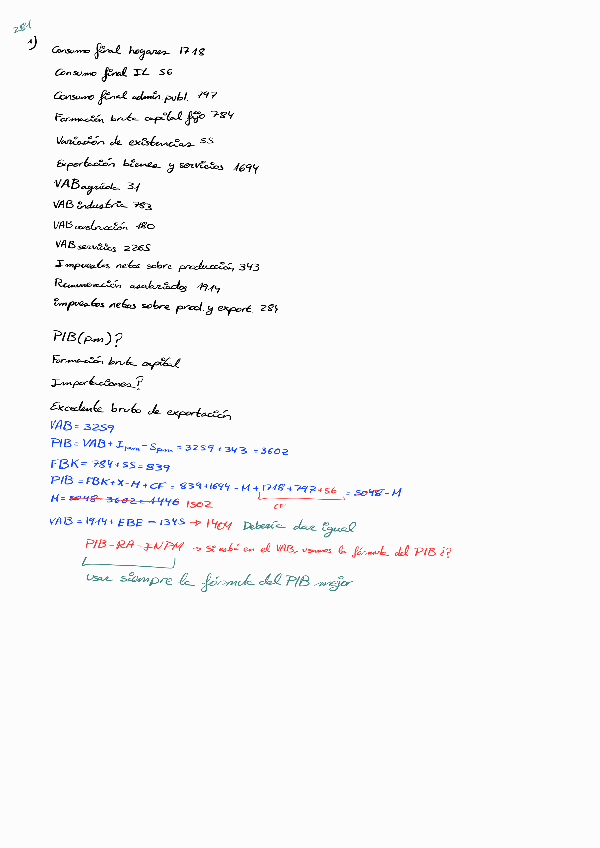 281
1)
Consumo final hogares 1718
Consumo final IL 56
Consumo final admin. publ. 797
Formación bruta capital fijo 784
Variación de existencias 55
Exportación bienes y servicios 1694
VAB agrícola 31
VAB industria 783
VAB construcción 180
VAB servicios 2265
Impuestos netos sobre producción 343
Remuneración asalariados 1914
impuestos netos sobre prod. y export. 284
PIB(pm)?
Formación bruta capital
Importaciones?
Excedente bruto de exportación
VAB = 3259
PIB = VAB + Ipm - Spm = 3259 + 343 = 3602
FBK = 784 + 55 = 839
PIB = FBK + X - M + CF = 839 + 1694 - M + 1718 + 797 + 56 = 5048 - M
CF
M = 5048 - 3602 = 1446 1502
VAB = 1914 + EBE = 1345 → 1404 Debería dar igual
PIB - RA - INPM → si está en el VAB, usamos la fórmula del PIB ¿?
usar siempre la fórmula del PIB mejor